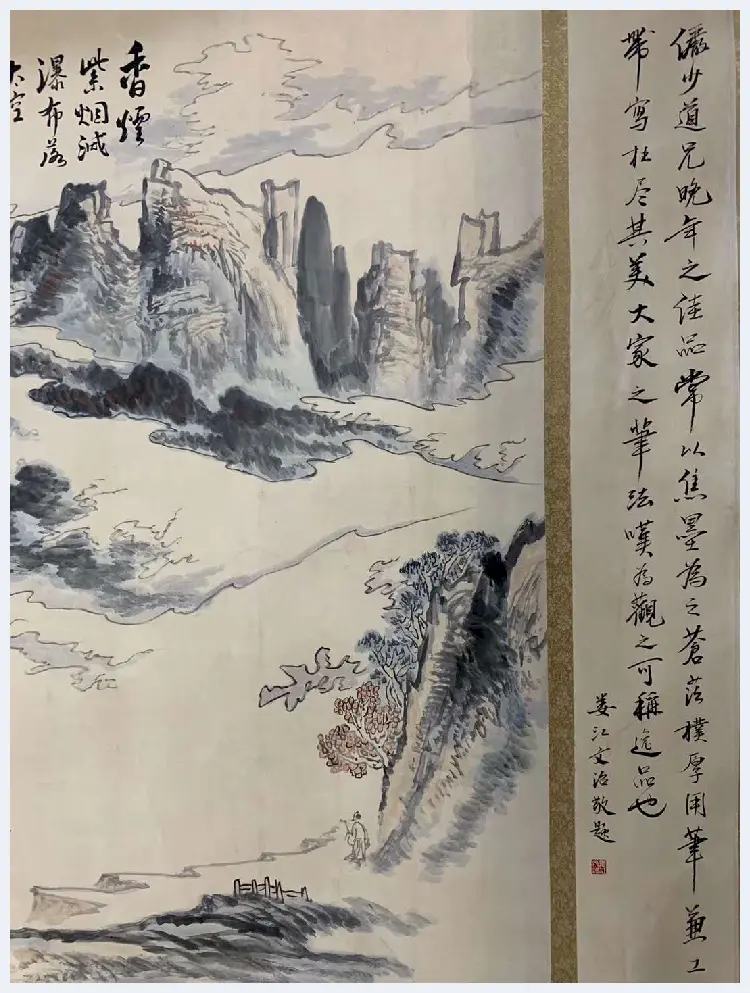 儼少道兄晚年之佳品常以焦墨為之蒼茫樸厚用筆兼工
帶寫尽其美大家之筆法嘆為觀之可稱逸品也
婁江文治敬題
香煙
紫烟滅
瀑布落
太空